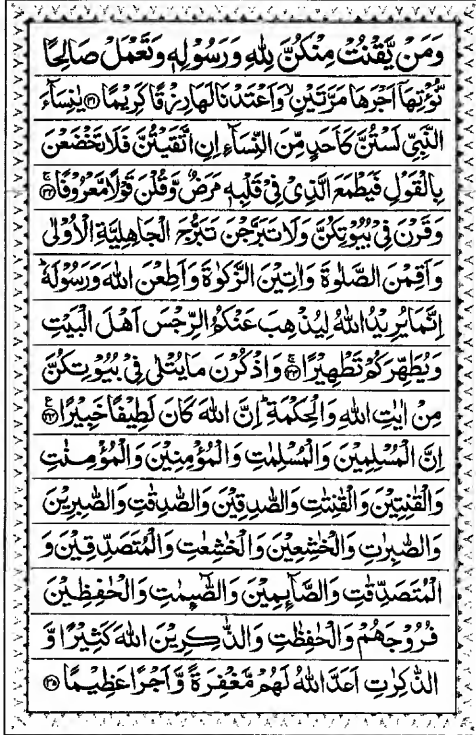 وَمَنْ يَّقْنُتْ مِنْكُنَّ لِلّٰهِ وَرَسُوْلِهٖ وَتَعْمَلْ صَالِحًا
نُّؤْتِهَآ اَجْرَهَا مَرَّتَيْنِ ۙ وَاَعْتَدْنَا لَهَا رِزْقًا كَرِيْمًا ﴿۳۱﴾ يٰنِسَآءَ
النَّبِيِّ لَسْتُنَّ كَاَحَدٍ مِّنَ النِّسَآءِ اِنِ اتَّقَيْتُنَّ فَلَا تَخْضَعْنَ
بِالْقَوْلِ فَيَطْمَعَ الَّذِيْ فِيْ قَلْبِهٖ مَرَضٌ وَّقُلْنَ قَوْلًا مَّعْرُوْفًا ﴿۳۲﴾
وَقَرْنَ فِيْ بُيُوْتِكُنَّ وَلَا تَبَرَّجْنَ تَبَرُّجَ الْجَاهِلِيَّةِ الْاُوْلٰى
وَاَقِمْنَ الصَّلٰوةَ وَاٰتِيْنَ الزَّكٰوةَ وَاَطِعْنَ اللّٰهَ وَرَسُوْلَهٗ ؕ
اِنَّمَا يُرِيْدُ اللّٰهُ لِيُذْهِبَ عَنْكُمُ الرِّجْسَ اَهْلَ الْبَيْتِ
وَيُطَهِّرَكُمْ تَطْهِيْرًا ﴿۳۳﴾ وَاذْكُرْنَ مَا يُتْلٰى فِيْ بُيُوْتِكُنَّ
مِنْ اٰيٰتِ اللّٰهِ وَالْحِكْمَةِ ؕ اِنَّ اللّٰهَ كَانَ لَطِيْفًا خَبِيْرًا ﴿۳۴﴾
اِنَّ الْمُسْلِمِيْنَ وَالْمُسْلِمٰتِ وَالْمُؤْمِنِيْنَ وَالْمُؤْمِنٰتِ
وَالْقٰنِتِيْنَ وَالْقٰنِتٰتِ وَالصّٰدِقِيْنَ وَالصّٰدِقٰتِ وَالصّٰبِرِيْنَ
وَالصّٰبِرٰتِ وَالْخٰشِعِيْنَ وَالْخٰشِعٰتِ وَالْمُتَصَدِّقِيْنَ وَ
الْمُتَصَدِّقٰتِ وَالصَّآئِمِيْنَ وَالصّٰٓئِمٰتِ وَالْحٰفِظِيْنَ
فُرُوْجَهُمْ وَالْحٰفِظٰتِ وَالذّٰكِرِيْنَ اللّٰهَ كَثِيْرًا وَّ
الذّٰكِرٰتِ اَعَدَّ اللّٰهُ لَهُمْ مَّغْفِرَةً وَّاَجْرًا عَظِيْمًا ﴿۳۵﴾